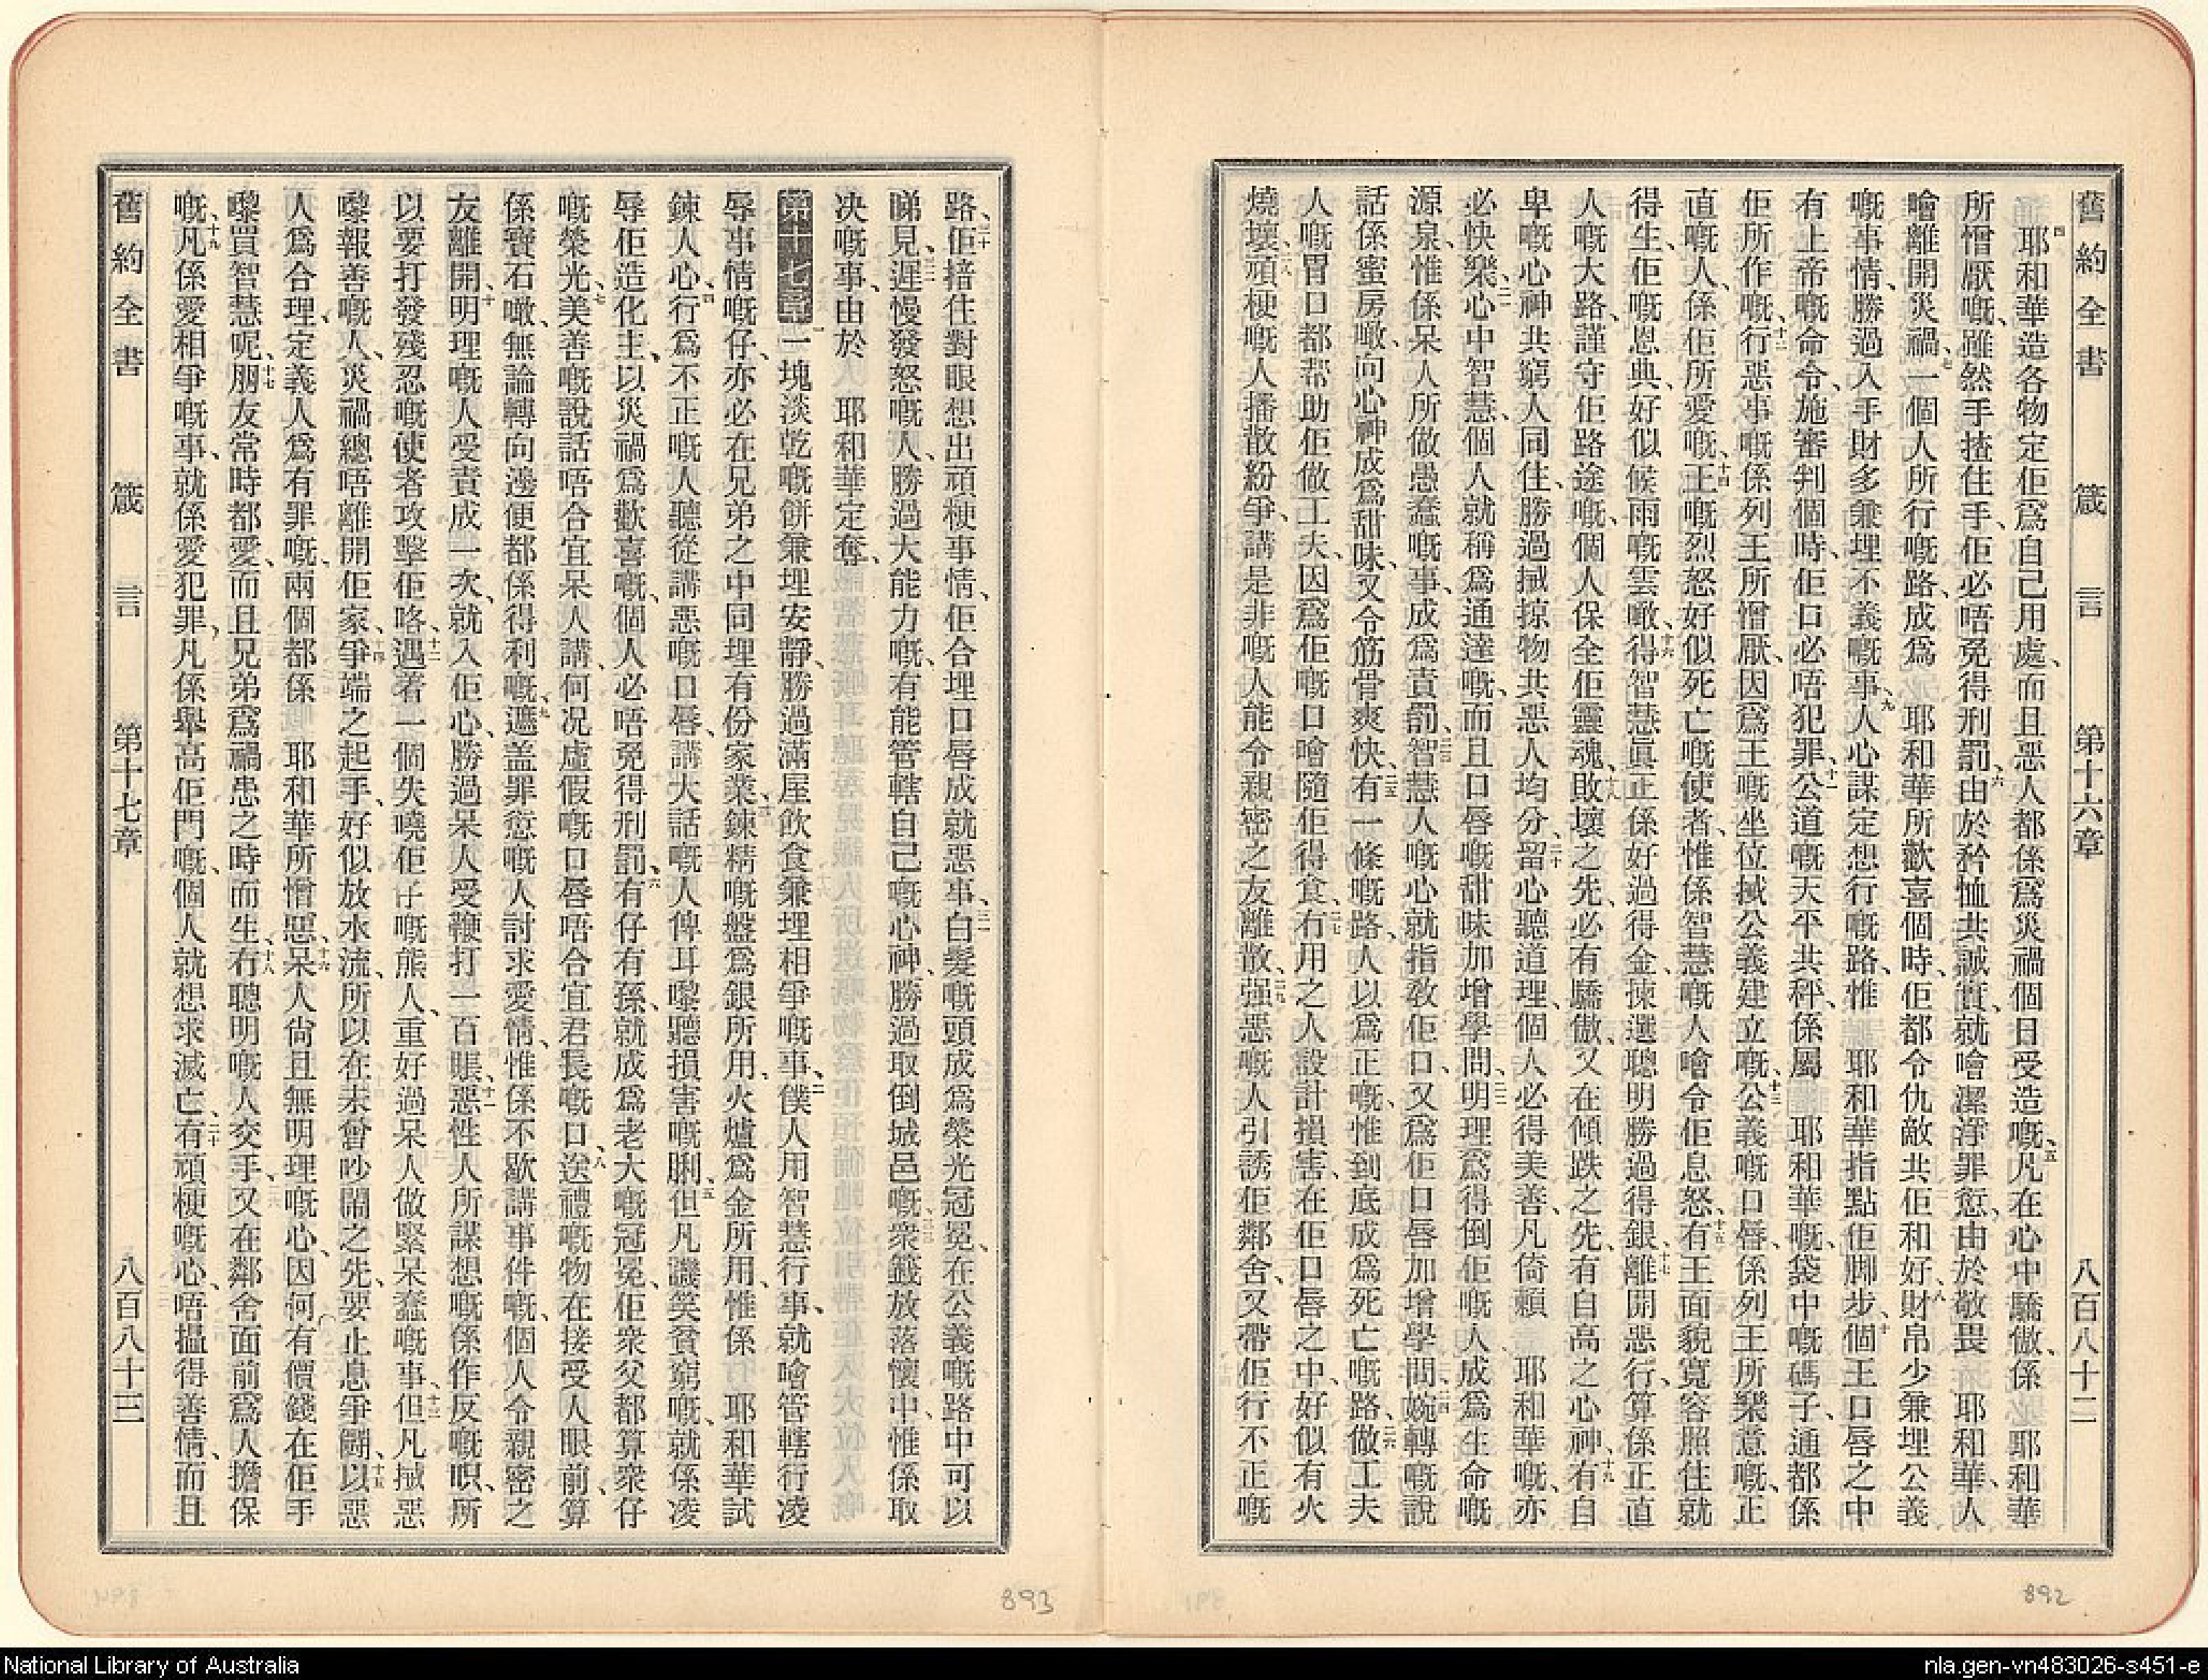 舊約全書 箴言 第十六章 八百八十二
四耶和華造各物定佢爲自己用處、而且惡人都係爲災禍個日受造嘅、五凡在心中驕傲、係 耶和華
所憎厭嘅、雖然手揸住手、佢必唔免得刑罰、六由於矜恤共誠實、就噲潔淨罪愆、由於敬畏 耶和華、人
噲離開災禍、七一個人所行嘅路、成爲 耶和華所歡喜個時、佢都令仇敵共佢和好、八財帛少兼埋公義
嘅事情、勝過入手財多兼埋不義嘅事、九人心謀定想行嘅路、惟 耶和華指點佢脚步、十個王口唇之中
有上帝嘅命令、施審判個時、佢口必唔犯罪、十一公道嘅天平共秤、係屬 耶和華嘅、袋中嘅碼子、通都係
佢所作嘅、十二行惡事嘅、係列王所憎厭、因爲王嘅坐位掝公義建立嘅、十三公義嘅口唇、係列王所樂意嘅、正
直嘅人、係佢所愛嘅、十四王嘅烈怒好似死亡嘅使者、惟係智慧嘅人噲令佢息怒、十五有王面貌寬容照住就
得生、佢嘅恩典、好似候雨嘅雲噉、十六得智慧眞正係好過得金、揀選聰明勝過得銀、十七離開惡行、算係正直
人嘅大路、謹守佢路途嘅、個人保全佢靈魂、十八敗壞之先、必有驕傲、又在傾跌之先、有自高之心神、十九有自
卑嘅心神、共窮人同住、勝過掝掠物共惡人均分、二十留心聽道理、個人必得美善、凡倚賴 耶和華嘅、亦
必快樂、二一心中智慧、個人就稱爲通達嘅、而且口唇嘅甜味加增學問、二二明理爲得倒佢嘅人、成爲生命嘅
源泉、惟係呆人所做愚蠢嘅事、成爲責罰、二三智慧人嘅心就指敎佢口、又爲佢口唇加增學問、二四婉轉嘅說
話係蜜房噉、向心神成爲甜味、又令筋骨爽快、二五有一條嘅路、人以爲正嘅、惟到底成爲死亡嘅路、二六做工夫
人嘅胃口都帮助佢做工夫、因爲佢嘅口噲隨佢得食、二七有用之人設計損害、在佢口唇之中、好似有火
燒壞、二八頑梗嘅人播散紛爭、講是非嘅人能令親密之友離散、二九强惡嘅人引誘佢鄰舍、又帶佢行不正嘅
路、三十佢揞住對眼想出頑梗事情、佢合埋口唇成就惡事、三一白髮嘅頭成爲榮光冠冕、在公義嘅路中可以
睇見、三二遲慢發怒嘅人、勝過大能力嘅、有能管轄自己嘅心神、勝過取倒城邑嘅、三三衆籤放落懷中、惟係取
决嘅事、由於 耶和華定奪、
第十七章 一一塊淡乾嘅餅兼埋安靜、勝過滿屋飲食兼埋相爭嘅事、二僕人用智慧行事、就噲管轄行凌
辱事情嘅仔、亦必在兄弟之中同埋有份家業、三鍊精嘅盤爲銀所用、火爐爲金所用、惟係 耶和華試
鍊人心、四行爲不正嘅人聽從講惡嘅口唇、講大話嘅人俾耳嚟聽損害嘅脷、五但凡譏笑貧窮嘅、就係凌
辱佢造化主、以災禍爲歡喜嘅、個人必唔免得刑罰、六有仔有孫、就成爲老大嘅冠冕、佢衆父都算衆仔
嘅榮光、七美善嘅說話唔合宜呆人講、何况虛假嘅口唇唔合宜君長嘅口、八送禮嘅物在接受人眼前、算
係寶石噉、無論轉向邊便都係得利嘅、九遮盖罪愆嘅人討求愛情、惟係不歇講事件嘅、個人令親密之
友離開、十明理嘅人受責成一次、就入佢心、勝過呆人受鞭打一百賬、十一惡性人所謀想嘅係作反嘅呮、所
以要打發殘忍嘅使者攻擊佢咯、十二遇着一個失曉佢仔嘅熊人、重好過呆人做緊呆蠢嘅事、十三但凡掝惡
嚟報善嘅人、災禍總唔離開佢家、十四爭端之起手、好似放水流、所以在未曾吵鬧之先、要止息爭鬭、十五以惡
人爲合理、定義人爲有罪嘅、兩個都係 耶和華所憎惡、十六呆人尙且無明理嘅心、因何有價錢在佢手
嚟買智慧呢、十七朋友常時都愛、而且兄弟爲禍患之時而生、十八冇聰明嘅人交手、又在鄰舍面前爲人擔保
嘅、十九凡係愛相爭嘅事、就係愛犯罪、凡係舉高佢門嘅、個人就想求滅亡、二十有頑梗嘅心、唔揾得善情、而且
舊約全書 箴言 第十七章 八百八十三
892
893
National Library of Australia
nla.gen-vn483026-s451-e